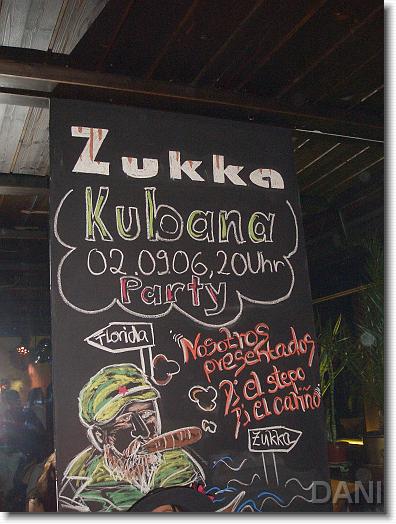 Zukka
Kubana
02.0906, 20 Uhr
Party
Florida
Nosotros
presentados
Dj el stepo
Dj el catiño
Zukka
DANI